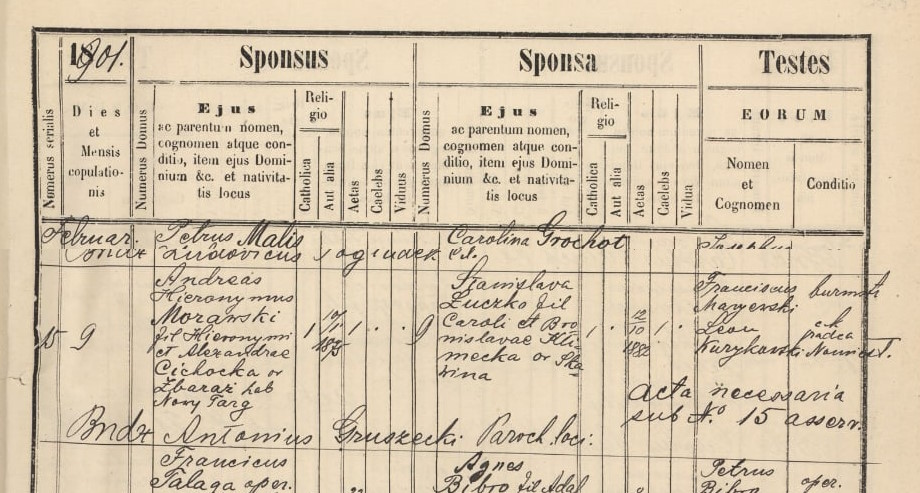 1901.
Sponsus
Sponsa
Testes
Numerus serialis
Dies
et
Mensis
copulatio-
nis
Numerus Domus
Ejus
ac parentum nomen,
cognomen atque con-
ditio, item ejus Domi-
nium &c. et nativita-
tis locus
Reli-
gio
Catholica
Aut alia
Aetas
Caelebs
Viduus
Numerus Domus
Ejus
ac parentum nomen,
cognomen atque con-
ditio, item ejus Domi-
nium &c. et nativita-
tis locus
Reli-
gio
Catholica
Aut alia
Aetas
Caelebs
Vidua
EORUM
Nomen
et
Cognomen
Conditio
Februar.
Petrus Malis
Carolina Grochot
Bndxt Ludovicus
15
9
Andreas
Hieronymus
Morawski
fil Hieronymi
et Alexandrae
Cichocka or
Zbaraż hab
Nowy Targ
1
1875
1
9
Stanislava
Łuczko fil
Caroli et Bro
nislavae Kli
mecka or Ska
wina
1
12
10
1882
1
Franciscus
Mayerski
burmistr
Leon
Kurykowski
c.k
acta necessaria
sub No. 15 asserv.
Bndxt Antonius Gruszecki Paroch. loci.
Francicus
Talaga oper.
Agnes
Bibro fil Adal
Petrus
Bibro
oper.